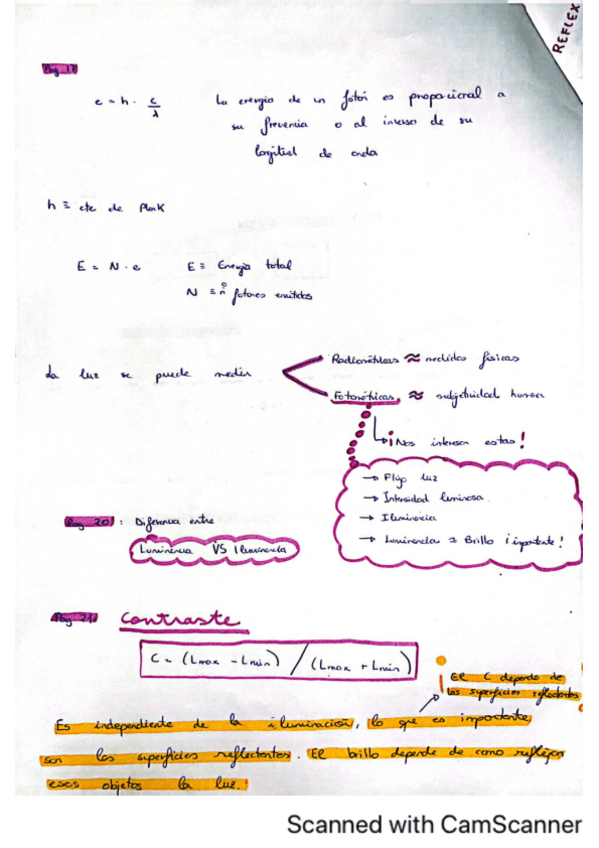 REFLEX
Pag 17
e = h · c/λ
La energia de un fotón es proporcional a
su frecuencia o al inverso de su
longitud de onda
h ≡ cte de Plank
E = N · e
E ≡ Energia total
N ≡ nº fotones emitidos
La luz se puede medir
Radiométricas ≈ medidas físicas
Fotométricas ≈ subjetividad humana
¡Nos interesan estas!
→ Flujo luz
→ Intensidad luminosa
→ Iluminancia
→ Luminancia ≈ Brillo ¡importante!
Pag 20: Diferencia entre
Luminancia VS Iluminancia
Pag 21: Contraste
C = (Lmax - Lmin) / (Lmax + Lmin)
El C depende de
las superficies reflectantes
Es independiente de la iluminación, lo que es importante
son las superficies reflectantes. El brillo depende de como reflejan
esos objetos la luz.
Scanned with CamScanner